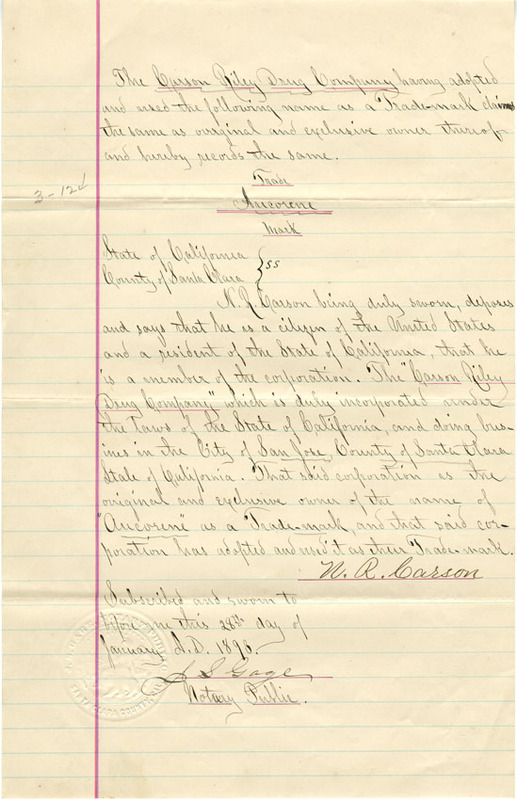 The Carson Riley Drug Company having adopted
and used the following name as a Trade-mark claims
the same as original and exclusive owner thereof
and hereby records the same.
3-12d
Trade
Aucorene
Mark
State of California
County of Santa Clara } ss
N. R. Carson being duly sworn, deposes
and says that he is a citizen of the United States
and a resident of the State of California, that he
is a member of the corporation. The "Carson Riley
Drug Company," which is duly incorporated under
the laws of the State of California, and doing bus-
ines in the City of San Jose, County of Santa Clara
State of California. That said corporation is the
original and exclusive owner of the name of
"Aucorene" as a Trade-mark, and that said cor-
poration has adopted and used it as their Trade-mark.
N. R. Carson
Subscribed and sworn to
before me this 28th day of
January A.D. 1893.
J S Gage
Notary Public.